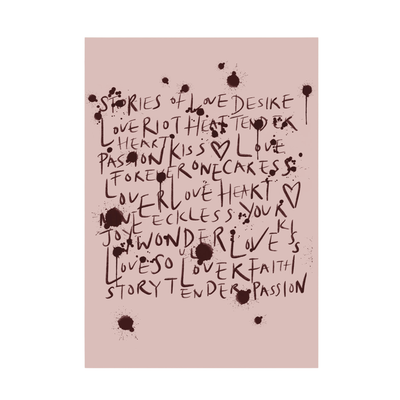 STORIES OF LOVE DESIRE
LOVE RIOT HEAT TENDER
HEART LOVE
PASSION KISS ♡
FOREVER ONE CARESS
LOVER LOVE HEART ♡
RECKLESS YOUR
JOY WONDER LOVE
LOVE SO LOVER FAITH
STORY TENDER PASSION